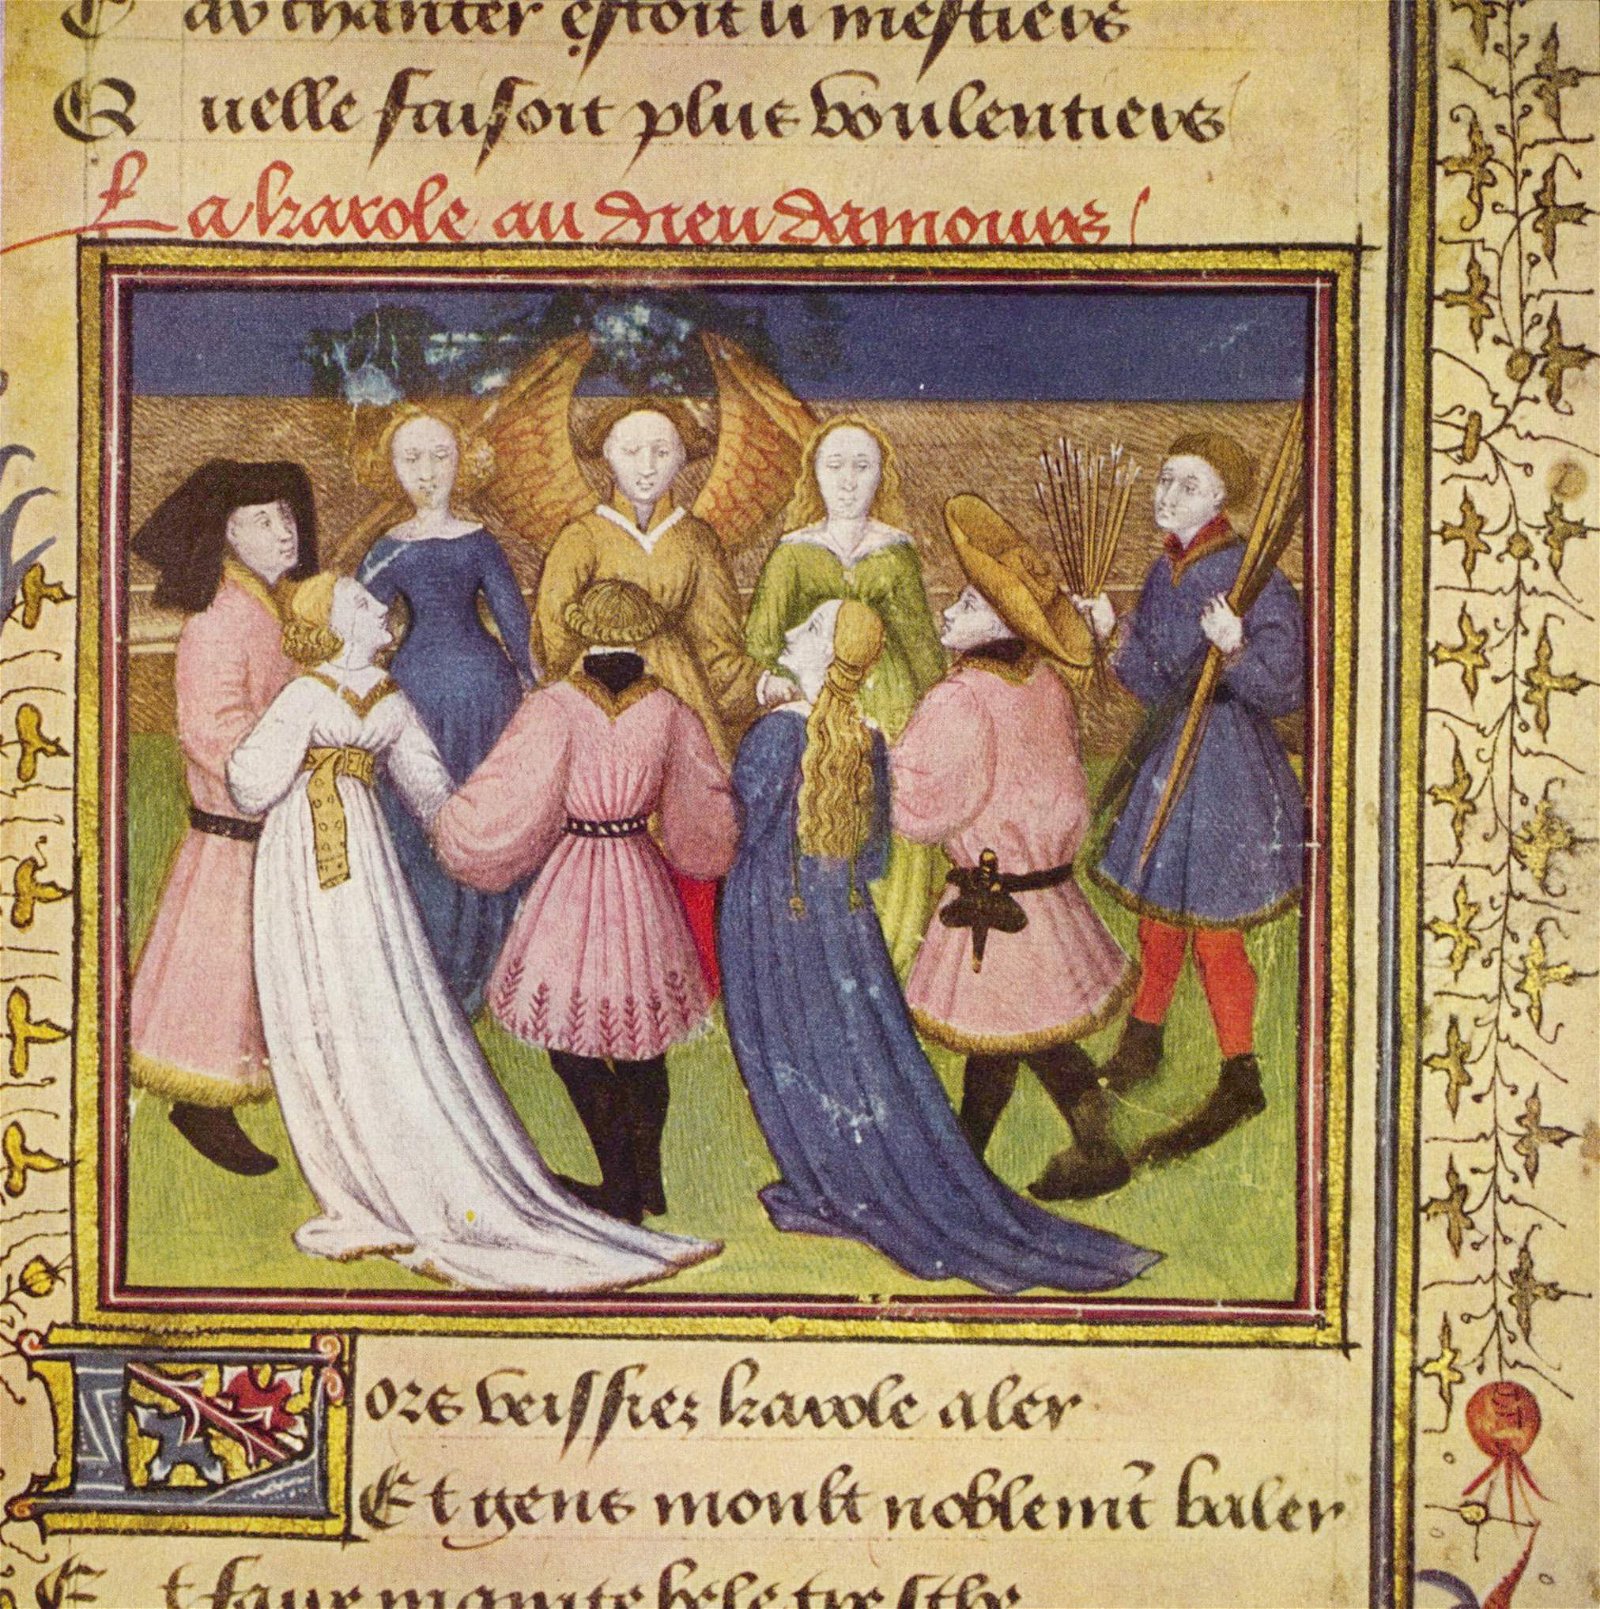 C au chanter estoit li mestiers
Q uelle faisoit plus voulentiers
La karole au dieu damours
Lors veissiez karole aler
Et gens moult noblemt baler
E t faire mainte bele tresche